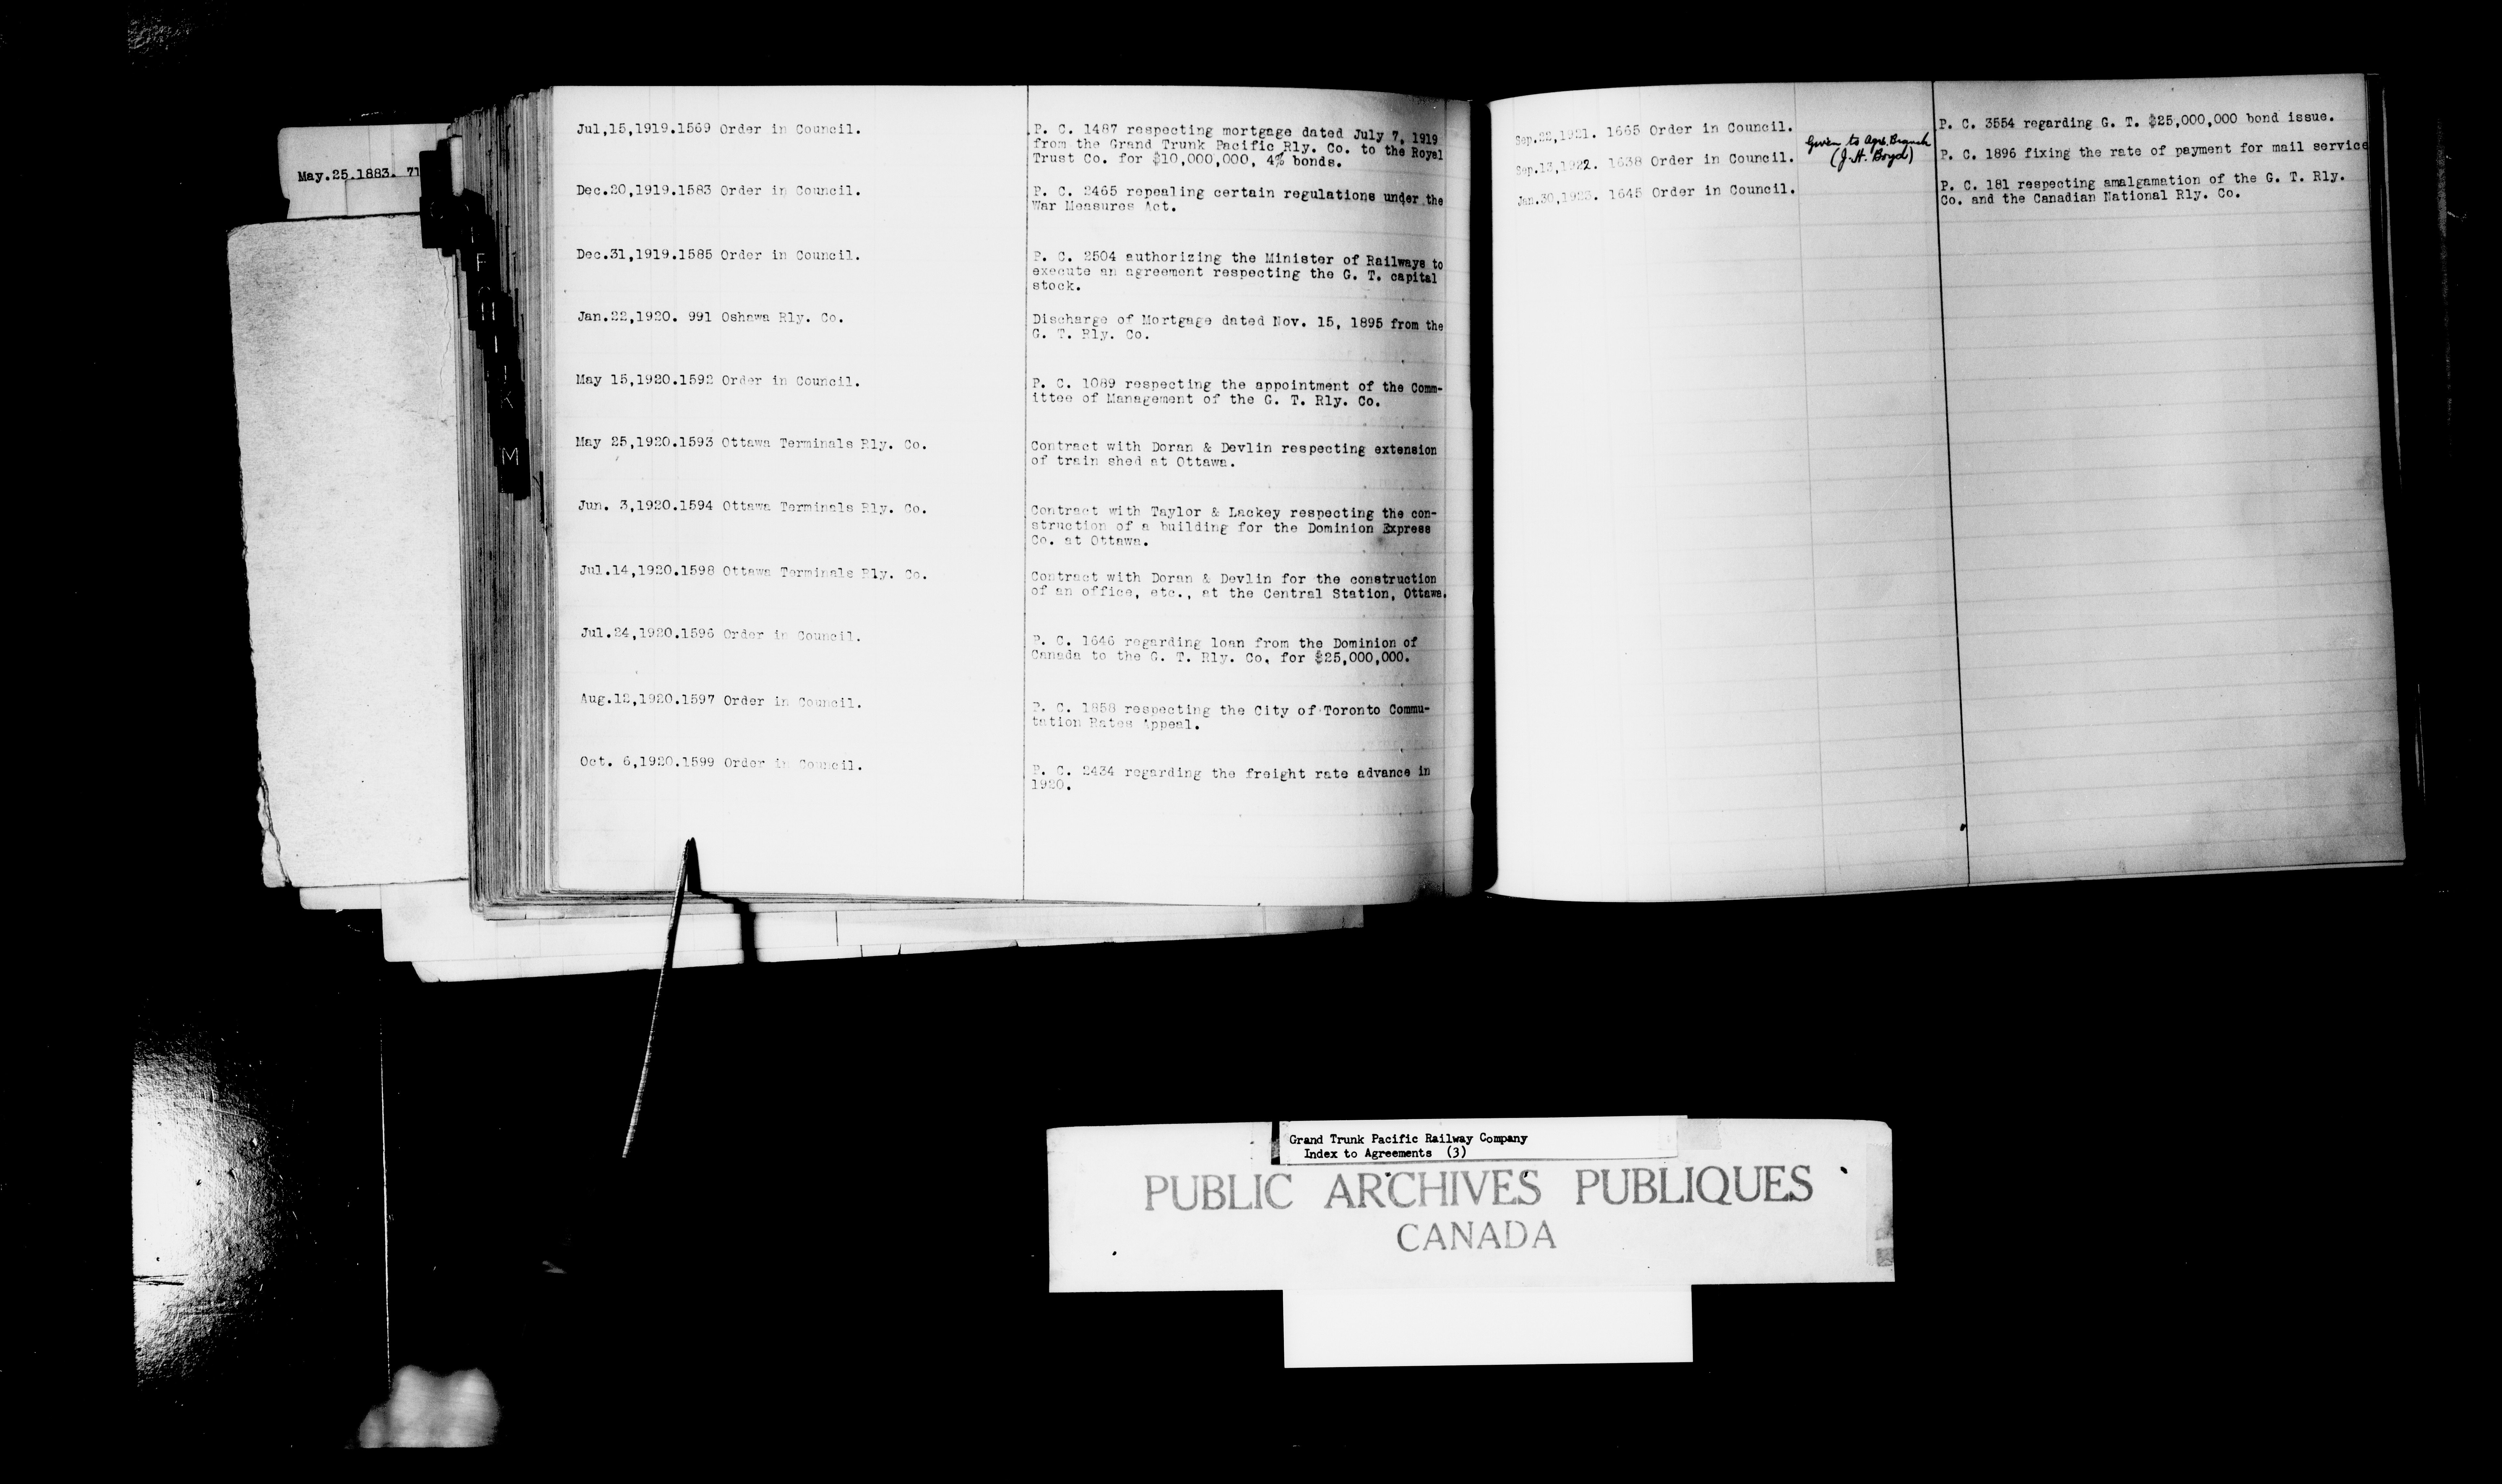 May.25.1883. 71
F
G
H
I
J
K
M
Jul,15,1919.1569 Order in Council. P. C. 1487 respecting mortgage dated July 7, 1919
from the Grand Trunk Pacific Rly. Co. to the Royal
Trust Co. for $10,000,000, 4% bonds.
Dec.20,1919.1583 Order in Council. P. C. 2465 repealing certain regulations under the
War Measures Act.
Dec.31,1919.1585 Order in Council. P. C. 2504 authorizing the Minister of Railways to
execute an agreement respecting the G. T. capital
stock.
Jan.22,1920. 991 Oshawa Rly. Co. Discharge of Mortgage dated Nov. 15, 1895 from the
G. T. Rly. Co.
May 15,1920.1592 Order in Council. P. C. 1089 respecting the appointment of the Comm-
ittee of Management of the G. T. Rly. Co.
May 25,1920.1593 Ottawa Terminals Rly. Co. Contract with Doran & Devlin respecting extension
of train shed at Ottawa.
Jun. 3,1920.1594 Ottawa Terminals Rly. Co. Contract with Taylor & Lackey respecting the con-
struction of a building for the Dominion Express
Co. at Ottawa.
Jul.14,1920.1598 Ottawa Terminals Rly. Co. Contract with Doran & Devlin for the construction
of an office, etc., at the Central Station, Ottawa.
Jul.24,1920.1596 Order in Council. P. C. 1646 regarding loan from the Dominion of
Canada to the G. T. Rly. Co. for $25,000,000.
Aug.12,1920.1597 Order in Council. P. C. 1858 respecting the City of Toronto Commu-
tation Rates Appeal.
Oct. 6,1920.1599 Order in Council. P. C. 2434 regarding the freight rate advance in
1920.
Sep.22,1921. 1665 Order in Council. P. C. 3554 regarding G. T. $25,000,000 bond issue.
Sep.13,1922. 1638 Order in Council. Given to Agrs. Branch P. C. 1896 fixing the rate of payment for mail service
(J. H. Boyd)
Jan.30,1923. 1645 Order in Council. P. C. 181 respecting amalgamation of the G. T. Rly.
Co. and the Canadian National Rly. Co.
Grand Trunk Pacific Railway Company
Index to Agreements (3)
PUBLIC ARCHIVES PUBLIQUES
CANADA